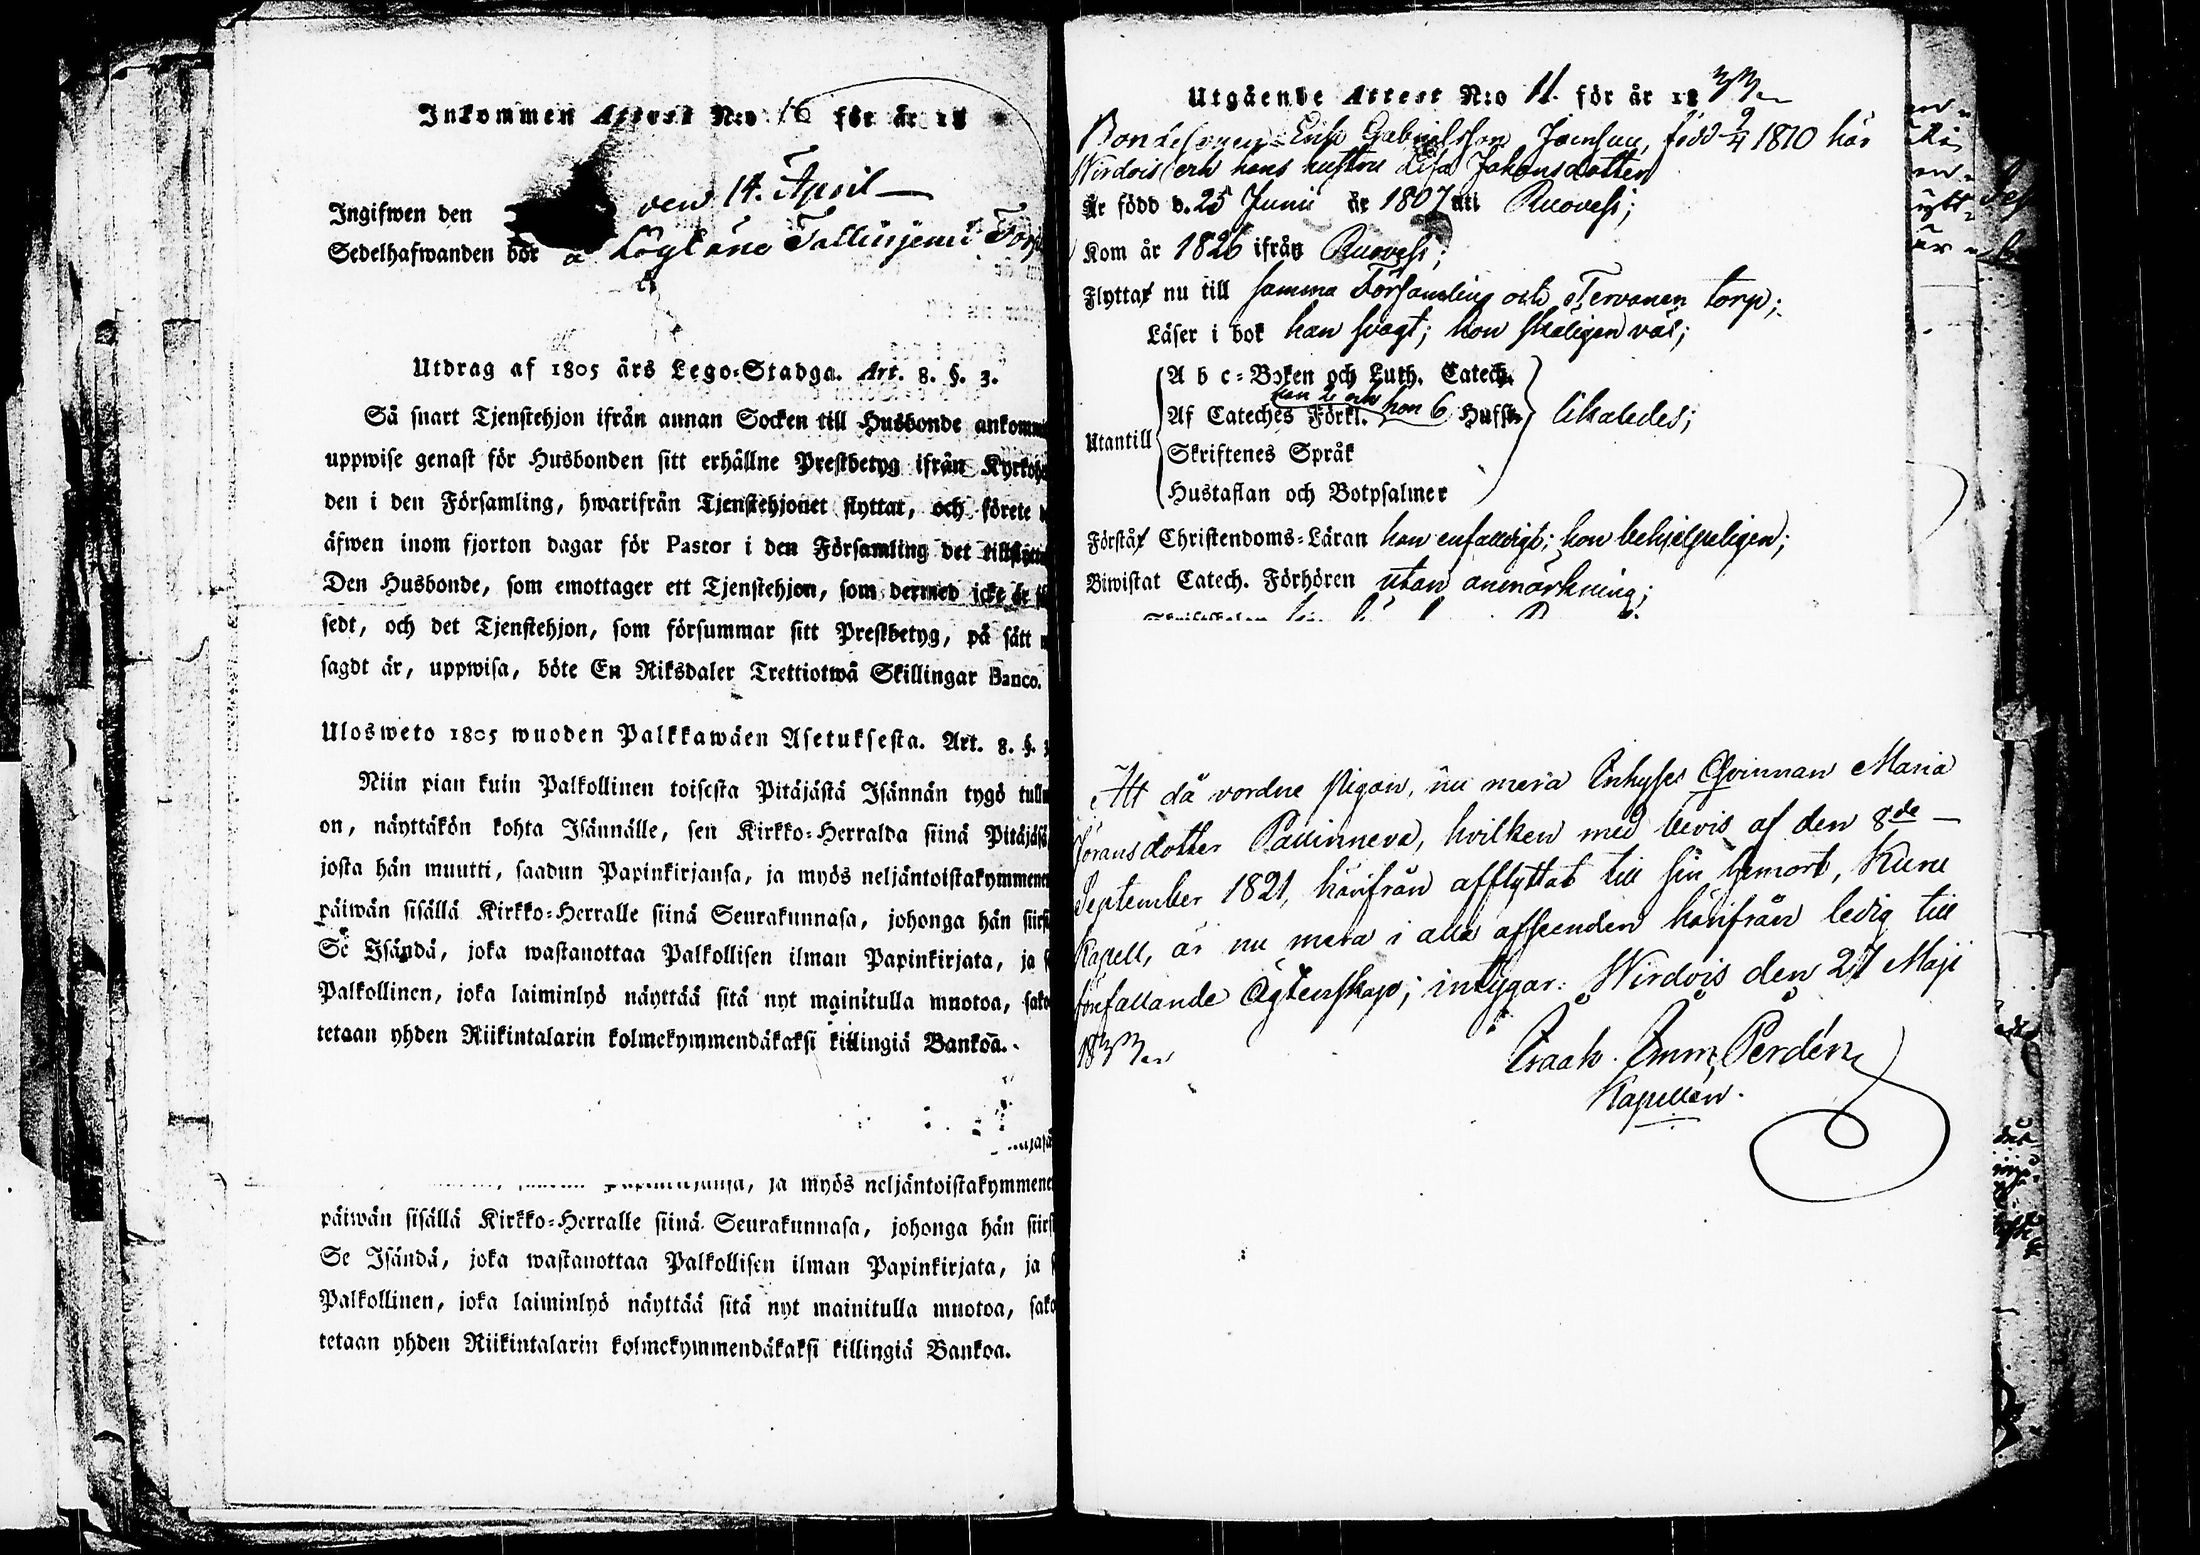 Inkommen Attest N:o 16 för år 18
Ingifwen den den 14. April
Sedelhafwanden bor å
Utdrag af 1805 års Lego-Stadga. Art. 8. §. 3.
Så snart Tjenstehjon ifrån annan Socken till Husbonde ankomm
uppwise genast för Husbonden sitt erhållne Prestbetyg ifrån Kyrkoh
den i den Församling, hwarifrån Tjenstehjonet flyttat, och förete
äfwen inom fjorton dagar för Pastor i den Församling det tillflytta
Den Husbonde, som emottager ett Tjenstehjon, som dermed icke är
sedt, och det Tjenstehjon, som försummar sitt Prestbetyg, på sätt
sagdt är, uppwisa, böte En Riksdaler Trettiotwå Skillingar Banco.
Ulosweto 1805 wuoden Palkkawäen Asetuksesta. Art. 8. §. 3
Niin pian kuin Palkollinen toisesta Pitäjästä Isännän tygö tullu
on, näyttäkön kohta Isännälle, sen Kirkko-Herralda siinä Pitäjäsä
josta hän muutti, saadun Papinkirjansa, ja myös neljäntoistakymmenen
päiwän sisällä Kirkko-Herralle siinä Seurakunnasa, johonga hän siirs
Se Isändä, joka wastanottaa Palkollisen ilman Papinkirjata, ja s
Palkollinen, joka laiminlyö näyttää sitä nyt mainitulla muotoa, sako
tetaan yhden Riikintalarin kolmekymmendäkaksi killingiä Bankoa.
ja myös neljäntoistakymmenen
päiwän sisällä Kirkko-Herralle siinä Seurakunnasa, johonga hän siirs
Se Isändä, joka wastanottaa Palkollisen ilman Papinkirjata, ja s
Palkollinen, joka laiminlyö näyttää sitä nyt mainitulla muotoa, sako
tetaan yhden Riikintalarin kolmekymmendäkaksi killingiä Bankoa.
Utgående Attest N:o 11. för år 1833
Bondesonen Erik Gabrielsson Jämsen, född 9/4 1810 här
Wirdois och hans hustru Lisa Johansdotter
Är född d. 25 Junii år 1807 uti Ruovesi;
Kom år 1826 ifrån Ruovesi;
Flyttar nu till samma Församling och Tervanen torp;
Läser i bok han svagt; hon skäligen väl;
A b c-Boken och Luth. Catech.
han 2 och hon 6
Af Cateches Förkl. Hufst.
Utantill likaledes;
Skriftenes Språk
Hustaflan och Botpsalmer
Förstår Christendoms-Läran han enfaldigt; hon behjelpeligen;
Biwistat Catech. Förhören utan anmärkning;
Att då vordne Pigan, nu mera Inhyses Qvinnan Maria
Göransdotter Pallinneva, hvilken med bevis af den 8de
September 1821, härifrån afflyttat till sin hemort, Kuru
Kapell, är nu mera i alla afseenden härifrån ledig till
förefallande Ägtenskap; intygar: Wirdois den 27 Maji
1833
Isaak. Imm. Perdén
Kapellan.